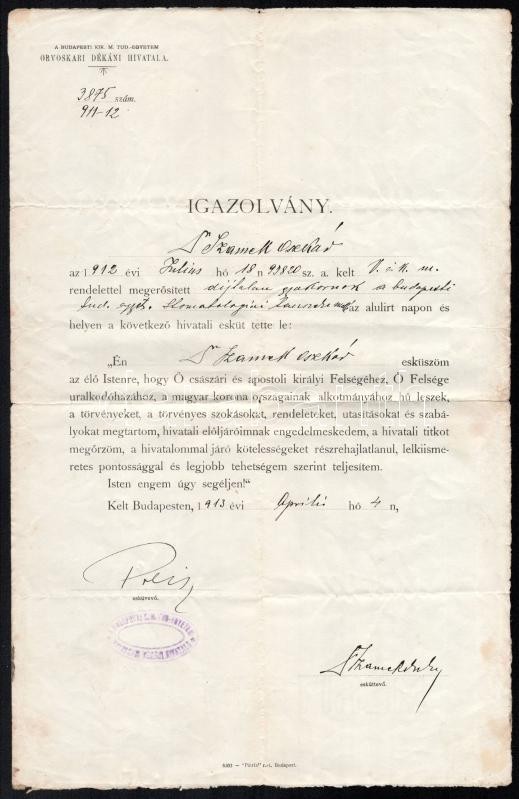 A BUDAPESTI KIR. M. TUD.-EGYETEM
ORVOSKARI DÉKÁNI HIVATALA.
3875 szám.
911-12
IGAZOLVÁNY.
Dr Szamek Oszkár
az 1912 évi Julius hó 18 n 93820 sz. a. kelt V. és K. m.
rendelettel megerősített díjtalan gyakornok a budapesti
tud. egyet. stomatologiai az alulirt napon és
helyen a következő hivatali esküt tette le:
„Én Dr Szamek Oszkár esküszöm
az élő Istenre, hogy Ő császári és apostoli királyi Felségéhez, Ő Felsége
uralkodóházához, a magyar korona országainak alkotmányához hű leszek,
a törvényeket, a törvényes szokásokat, rendeleteket, utasításokat és szabá-
lyokat megtartom, hivatali előljáróimnak engedelmeskedem, a hivatali titkot
megőrzöm, a hivatalommal járó kötelességeket részrehajlatlanul, lelkiisme-
retes pontossággal és legjobb tehetségem szerint teljesítem.
Isten engem úgy segéljen!"
Kelt Budapesten, 1913 évi Április hó 4 n,
Preisz
esküvevő.
Dr Szamek
esküttevő.
"Pátria" r.-t. Budapest.